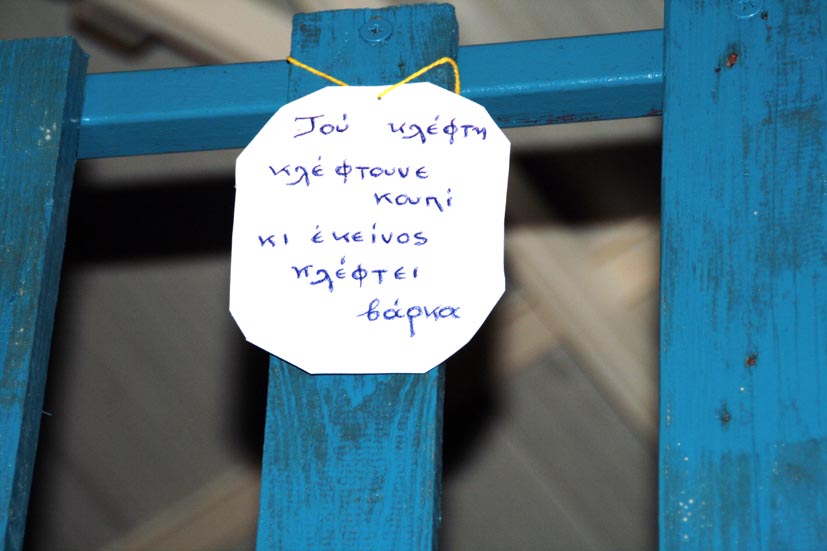 Τού κλέφτη
κλέφτουνε
κουπί
κι έκείνος
κλέφτει
βάρκα